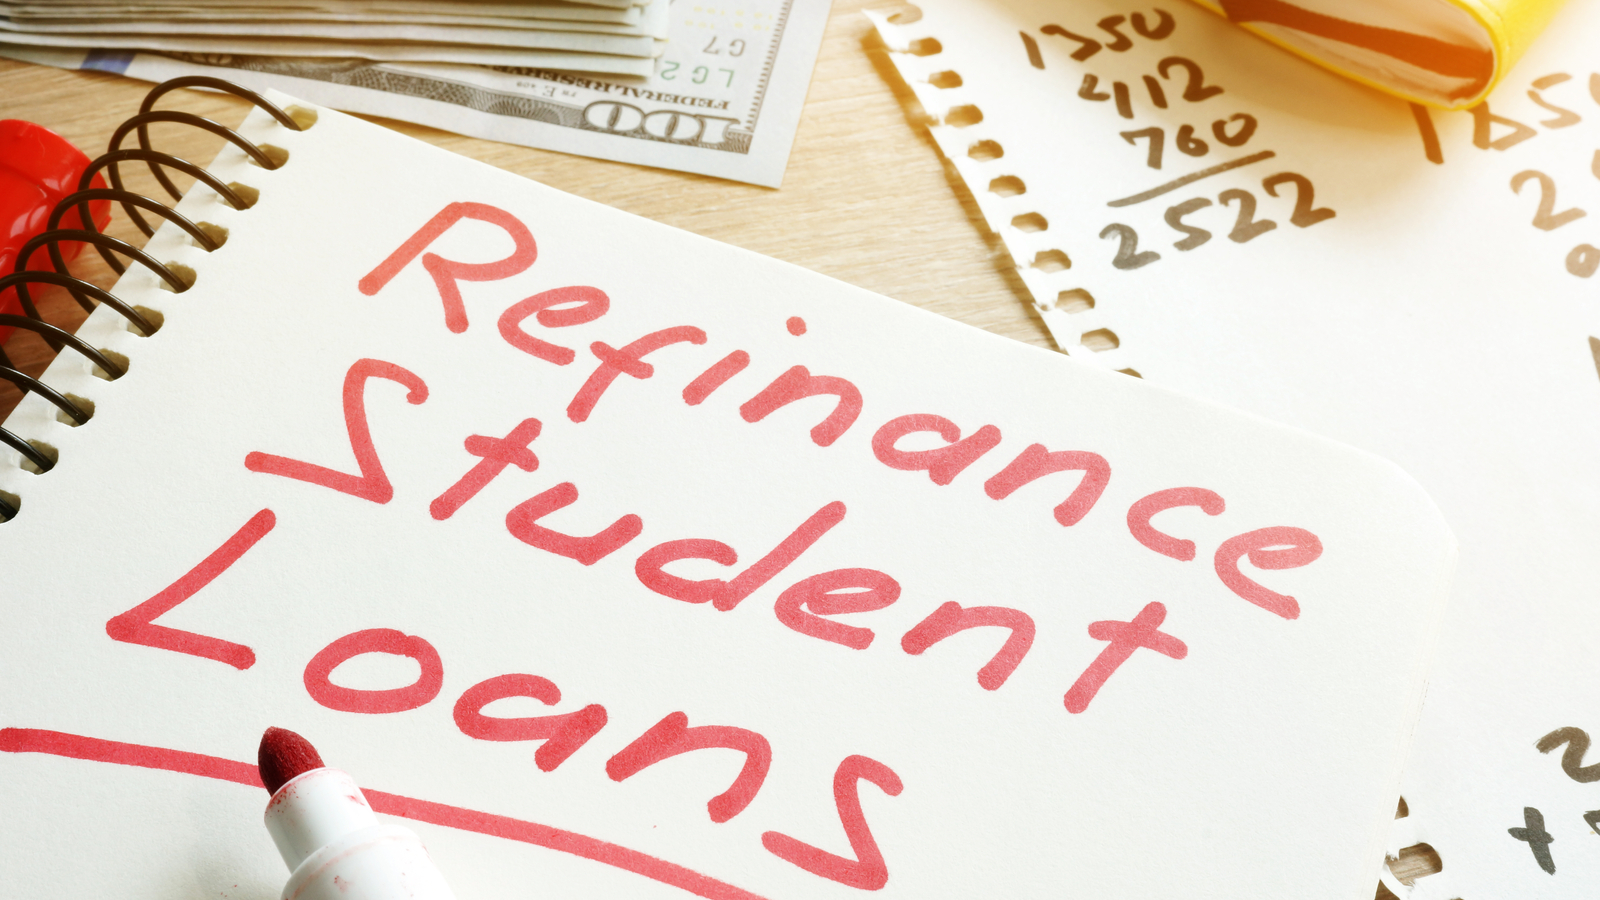 Refinance
Student
Loans
1350
412
760
2522
100
FEDERAL RESERVE
LG 2
G7